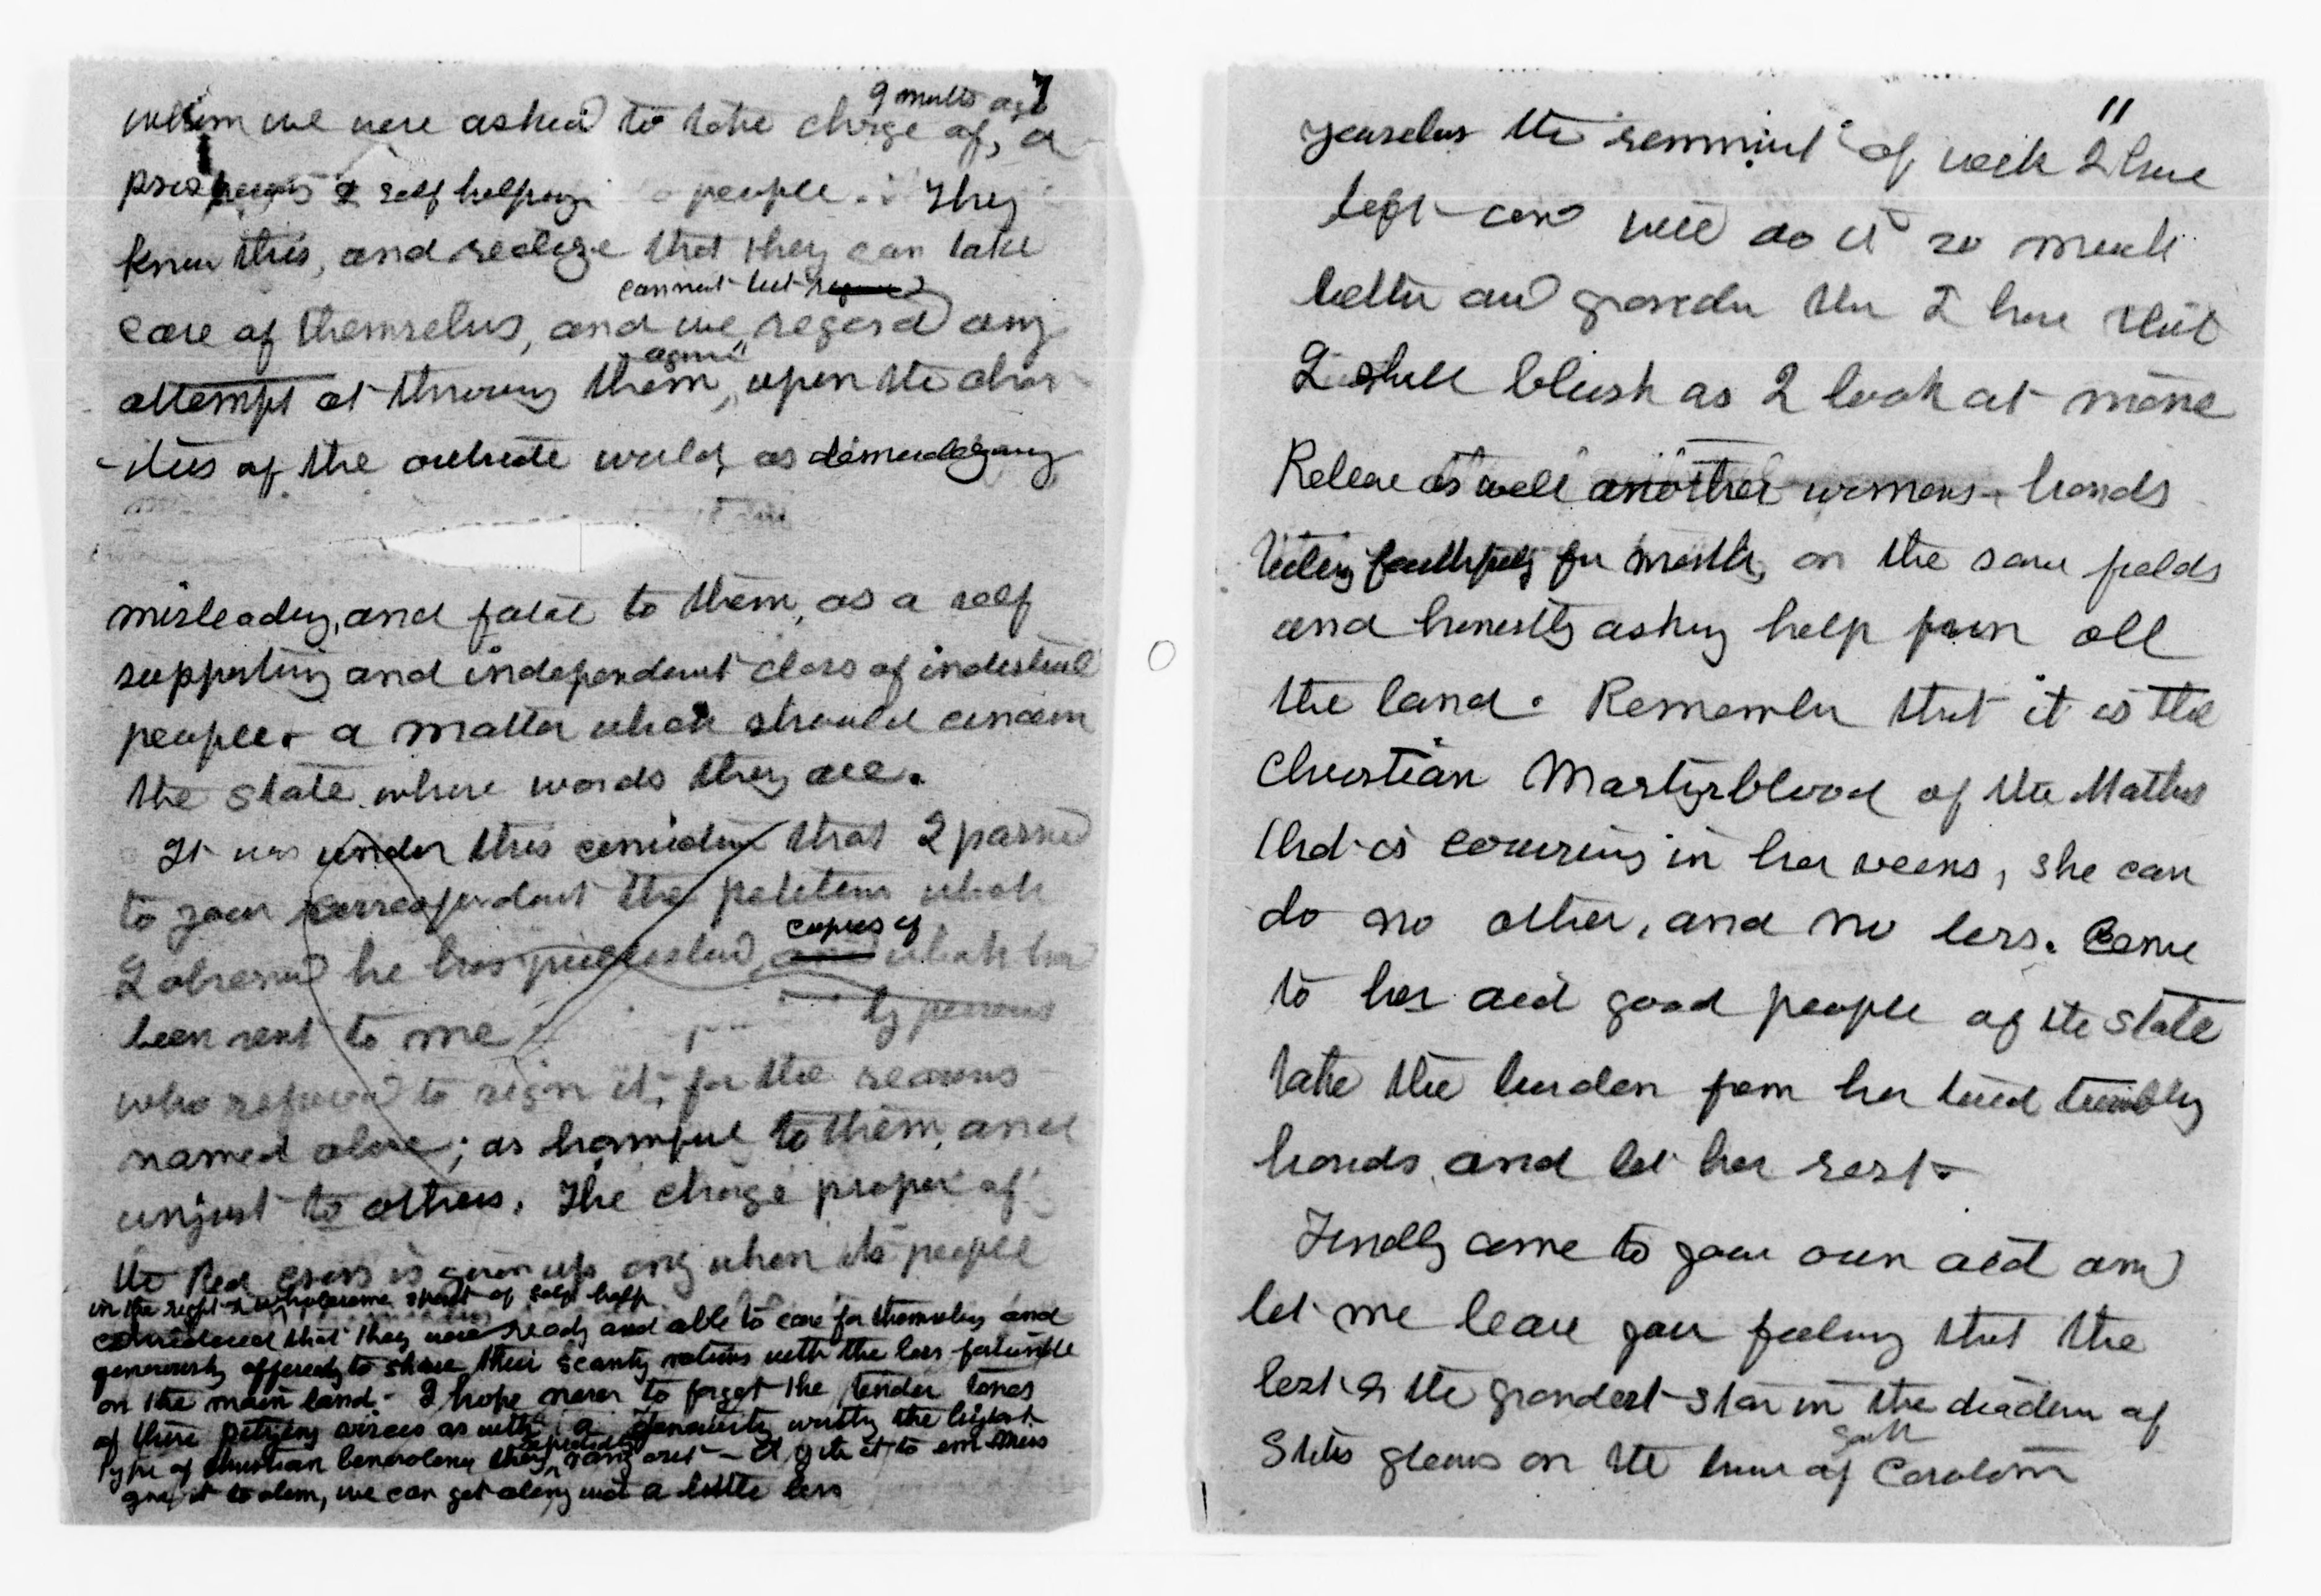 9 months ago 7
whom we were asked to take charge of, a
prosperous & self helping people. They
know this, and realize that they can take
cannot but
care of themselves, and we regard any
again
attempt at throwing them, upon the char-
-ities of the outside world, as demoralizing
misleading, and fatal to them, as a self
supporting and independent class of industrial
people. a matter which should concern
the state where wards they are.
It was under this conviction that I passed
to your correspondent the petition which
copies of
I observe he has published, which had
been sent to me by persons
who refused to sign it, for the reasons
named above; as harmful to them, and
unjust to others. The charge proper of
the Red cross is given up only when its people
in the right & wholesome spirit of self help
considered that they were ready and able to care for themselves and
generously offered to share their scanty rations with the less fortunate
on the main land. I hope never to forget the tender tones
of there pitying voices as with a generosity worthy the highest
type of christian benevolence they rang out — O, give it to em miss
give it to dem, we can get along wid a little less
11
yourselves the remnant of work I have
left and will do it so much
better and grander than I have that
I shall blush as I look at mine
Releave as well another womans hands
toiling faithfully for months, on the same fields
and honestly asking help from all
the land. Remember that it is the
Christian Martyrblood of the Mathers
that is coursing in her veens, she can
do no other, and no less. Come
to her aid good people of the state
take the burden from her tired trembling
hands, and let her rest.
Finally come to your own aid and
let me leave you feeling that the
last & the grandest star in the diadem of
South
States gleams on the brow of Carolina